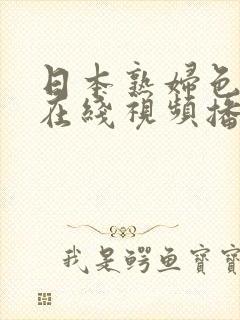 日本熟婦色
在綫視頻播
我是鳄鱼寶寶